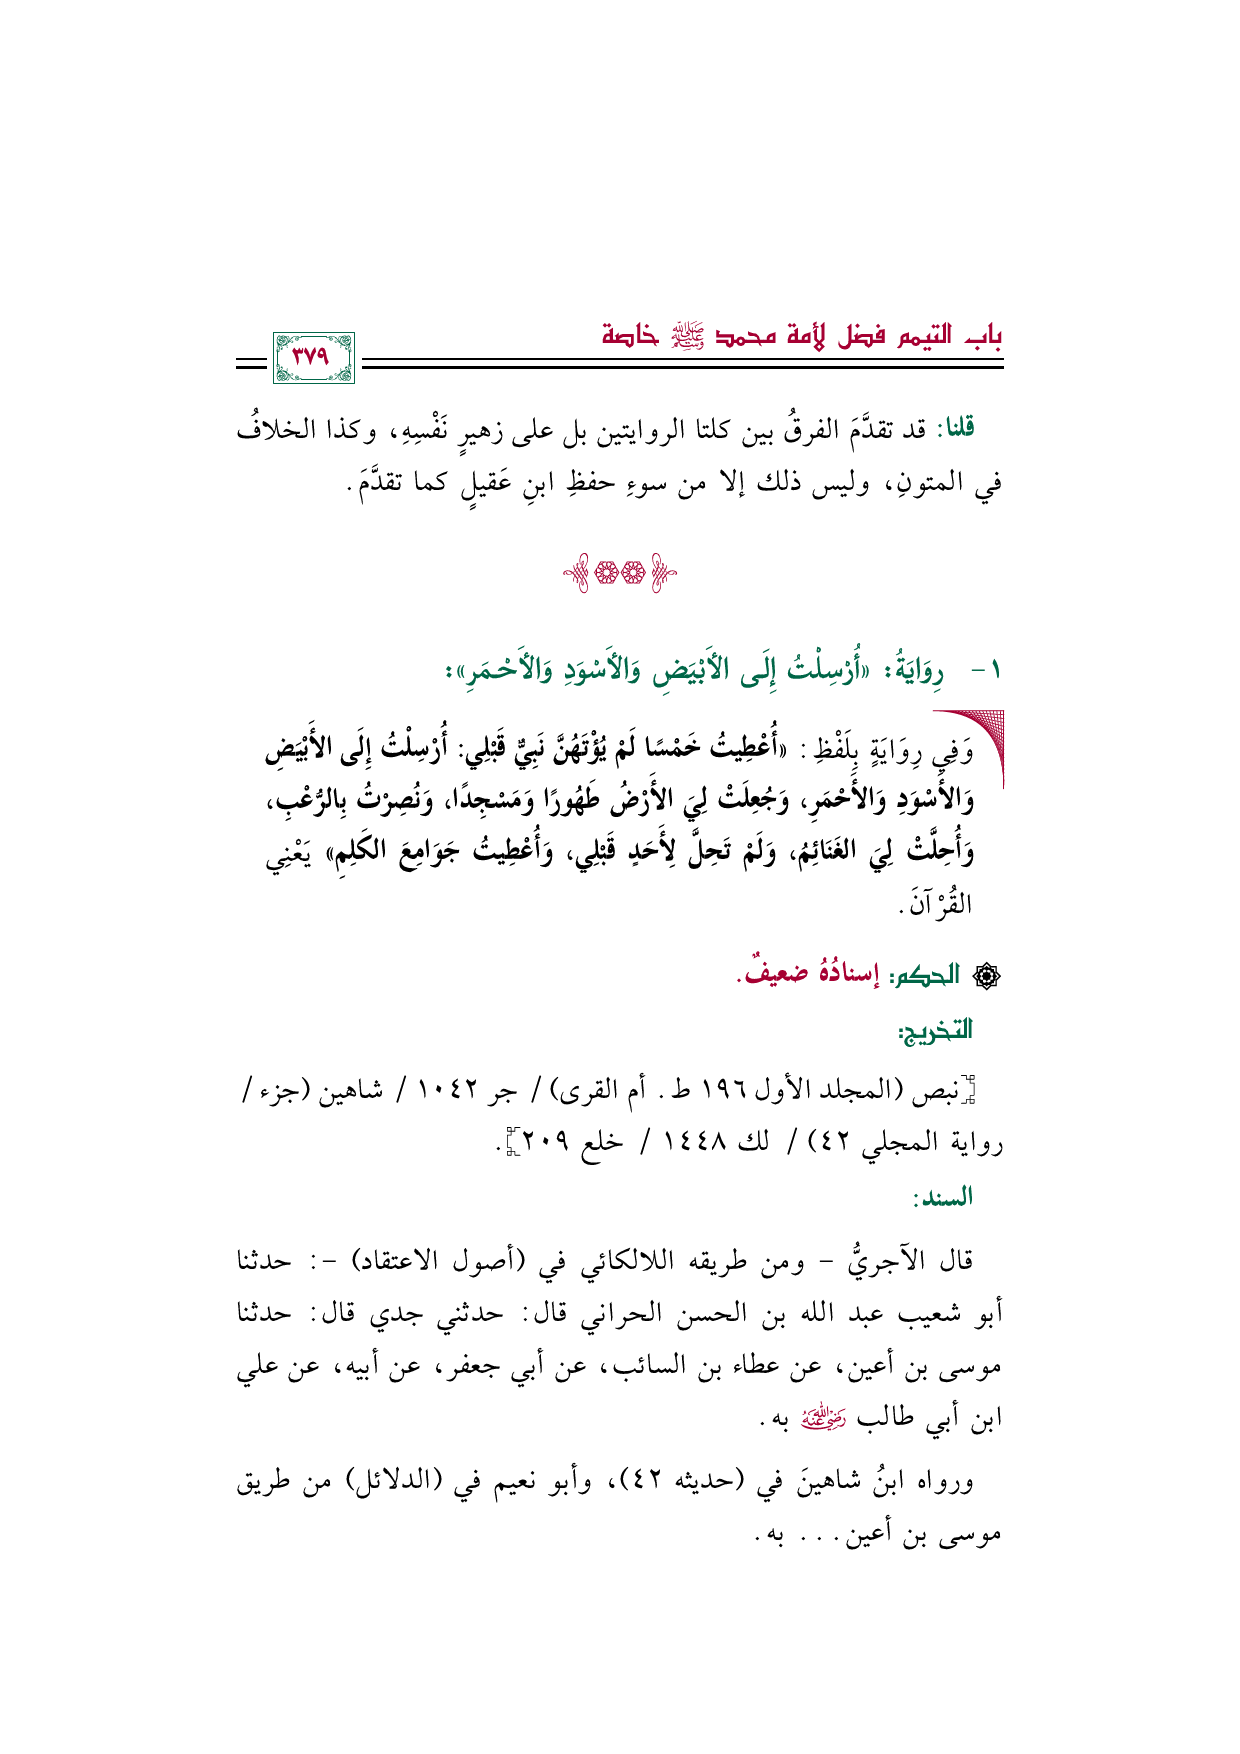 باب التيمم فضل لأمة محمد ﷺ خاصة
٣٧٩
قلنا: قد تقدَّمَ الفرقُ بين كلتا الروايتين بل على زهيرٍ نَفْسِهِ، وكذا الخلافُ
في المتونِ، وليس ذلك إلا من سوءِ حفظِ ابنِ عَقيلٍ كما تقدَّمَ.
١- رِوَايَةُ: «أُرْسِلْتُ إِلَى الأَبْيَضِ وَالأَسْوَدِ وَالأَحْمَرِ»:
وَفِي رِوَايَةٍ بِلَفْظِ: «أُعْطِيتُ خَمْسًا لَمْ يُؤْتَهُنَّ نَبِيٌّ قَبْلِي: أُرْسِلْتُ إِلَى الأَبْيَضِ
وَالأَسْوَدِ وَالأَحْمَرِ، وَجُعِلَتْ لِيَ الأَرْضُ طَهُورًا وَمَسْجِدًا، وَنُصِرْتُ بِالرُّعْبِ،
وَأُحِلَّتْ لِيَ الغَنَائِمُ، وَلَمْ تَحِلَّ لِأَحَدٍ قَبْلِي، وَأُعْطِيتُ جَوَامِعَ الكَلِمِ» يَعْنِي
القُرْآنَ.
الحكم: إسنادُهُ ضعيفٌ.
التخريج:
[نبص (المجلد الأول ١٩٦ ط. أم القرى) / جر ١٠٤٢ / شاهين (جزء /
رواية المجلي ٤٢) / لك ١٤٤٨ / خلع ٢٠٩].
السند:
قال الآجريُّ - ومن طريقه اللالكائي في (أصول الاعتقاد) -: حدثنا
أبو شعيب عبد الله بن الحسن الحراني قال: حدثني جدي قال: حدثنا
موسى بن أعين، عن عطاء بن السائب، عن أبي جعفر، عن أبيه، عن علي
ابن أبي طالب رضي الله عنه به.
ورواه ابنُ شاهينَ في (حديثه ٤٢)، وأبو نعيم في (الدلائل) من طريق
موسى بن أعين... به.